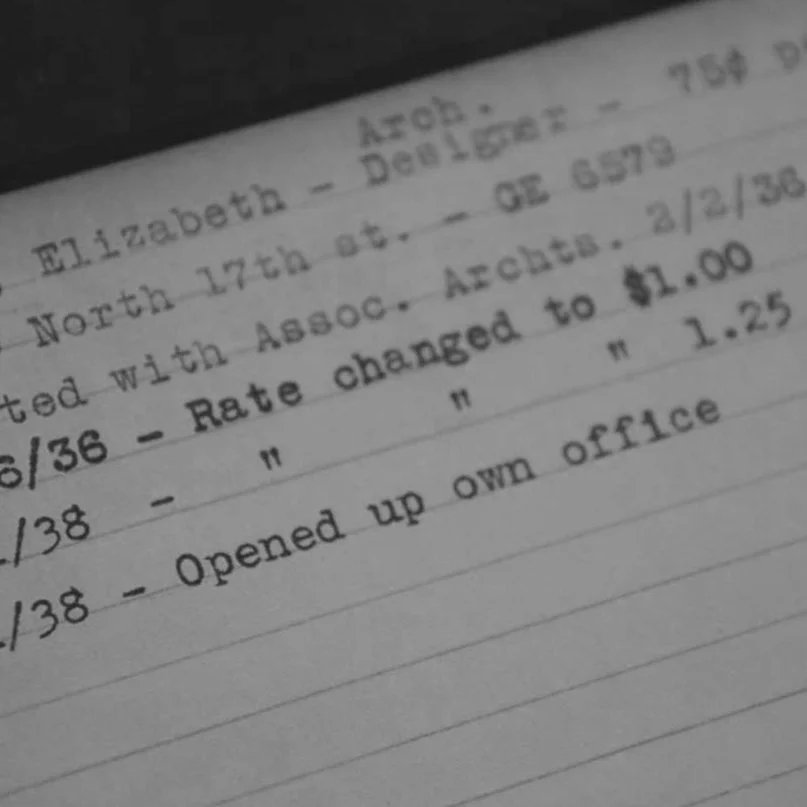 Arch.
Elizabeth - Designer - 75¢
North 17th st. - GE 6579
ted with Assoc. Archts. 2/2/36
6/36 - Rate changed to $1.00
/38 - " " " 1.25
/38 - Opened up own office